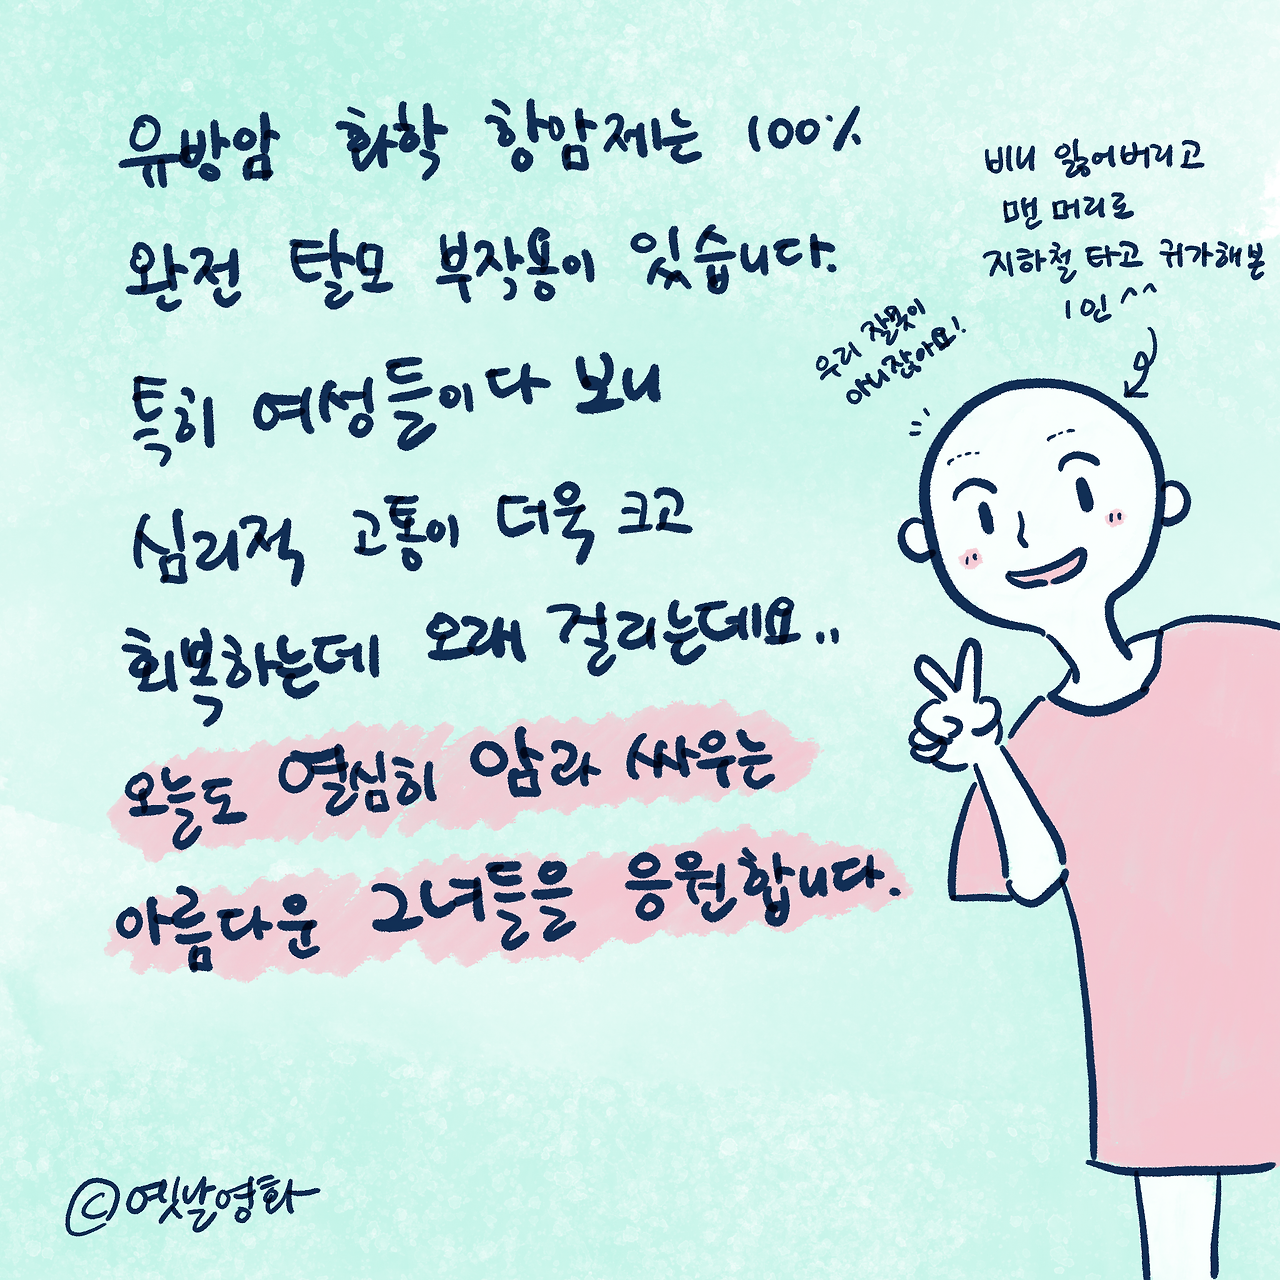 유방암 화학 항암제는 100%
완전 탈모 부작용이 있습니다.
특히 여성들이다 보니
심리적 고통이 더욱 크고
회복하는데 오래 걸리는데요..
오늘도 열심히 암과 싸우는
아름다운 그녀들을 응원합니다.
비니 잃어버리고
맨 머리로
지하철 타고 귀가해본
1인 ^^
우리 잘못이
아니잖아요!
©옛날영화